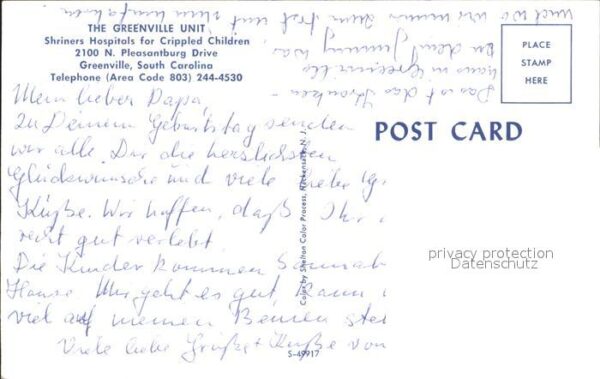 THE GREENVILLE UNIT
Shriners Hospitals for Crippled Children
2100 N. Pleasantburg Drive
Greenville, South Carolina
Telephone (Area Code 803) 244-4530
PLACE
STAMP
HERE
POST CARD
Das ist das Kranken-
haus in Greenville
zu dem Jimmy
und wo wir immer zum
Mein lieber Papa,
Zu Deinem Geburtstag senden
wir alle Dir die herzlichsten
Glückwünsche und viele liebe
Küße. Wir hoffen, daß Ihr
recht gut verlebt.
Die Kinder kommen
Hause. Mir geht es gut, kann
viel auf meinen Beinen
Viele liebe Grüße + Küße von
Color by Shelton Color Process, Hackensack, N. J.
S-49917
privacy protection
Datenschutz